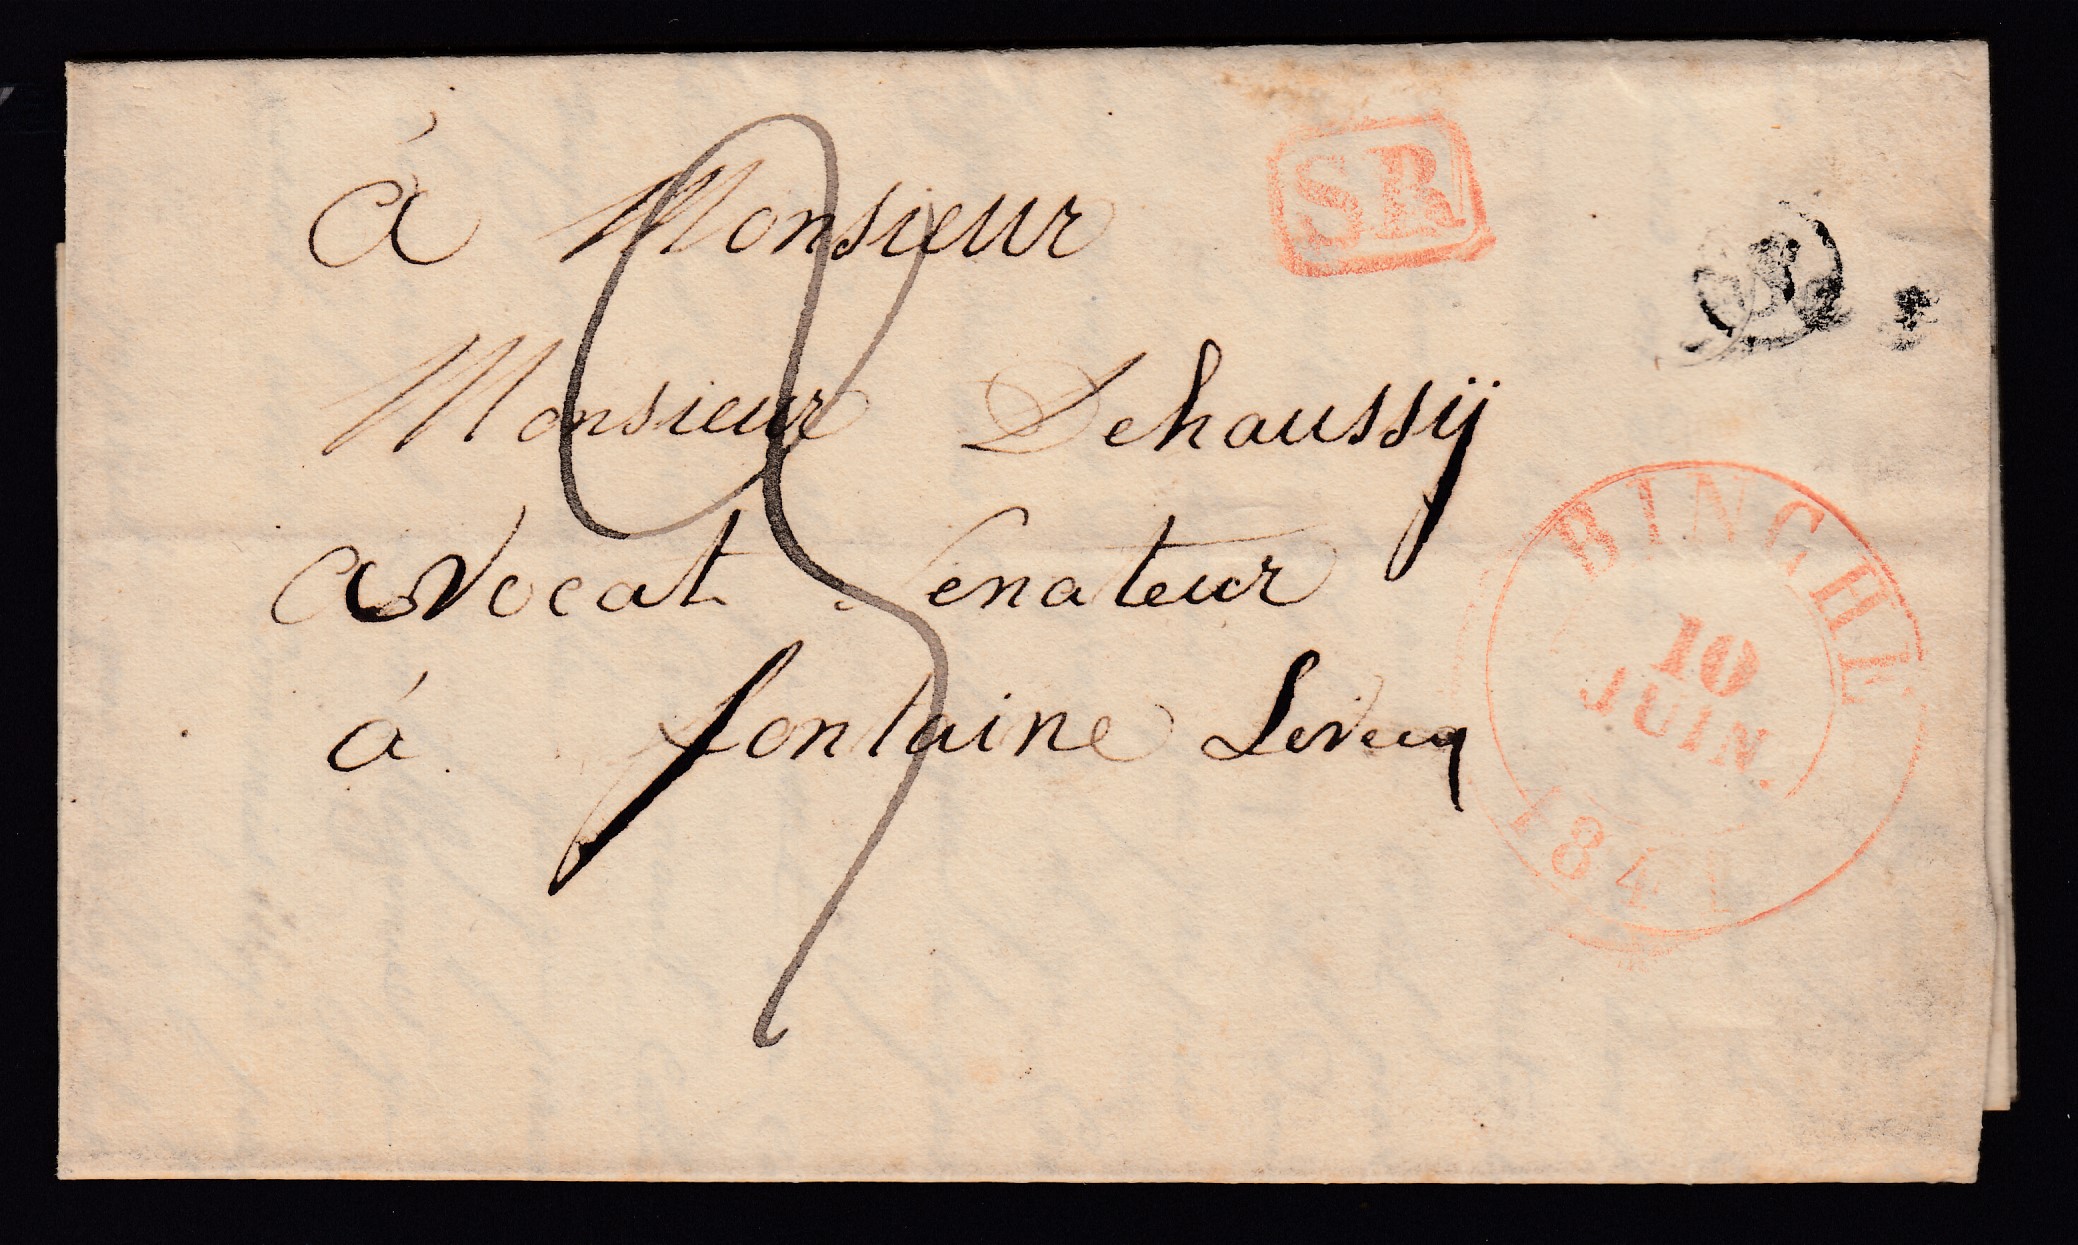 à Monsieur
SR
Monsieur Dehaussÿ
avocat Senateur
à fontaine Levecq
3
BINCHE
10
JUIN.
1841